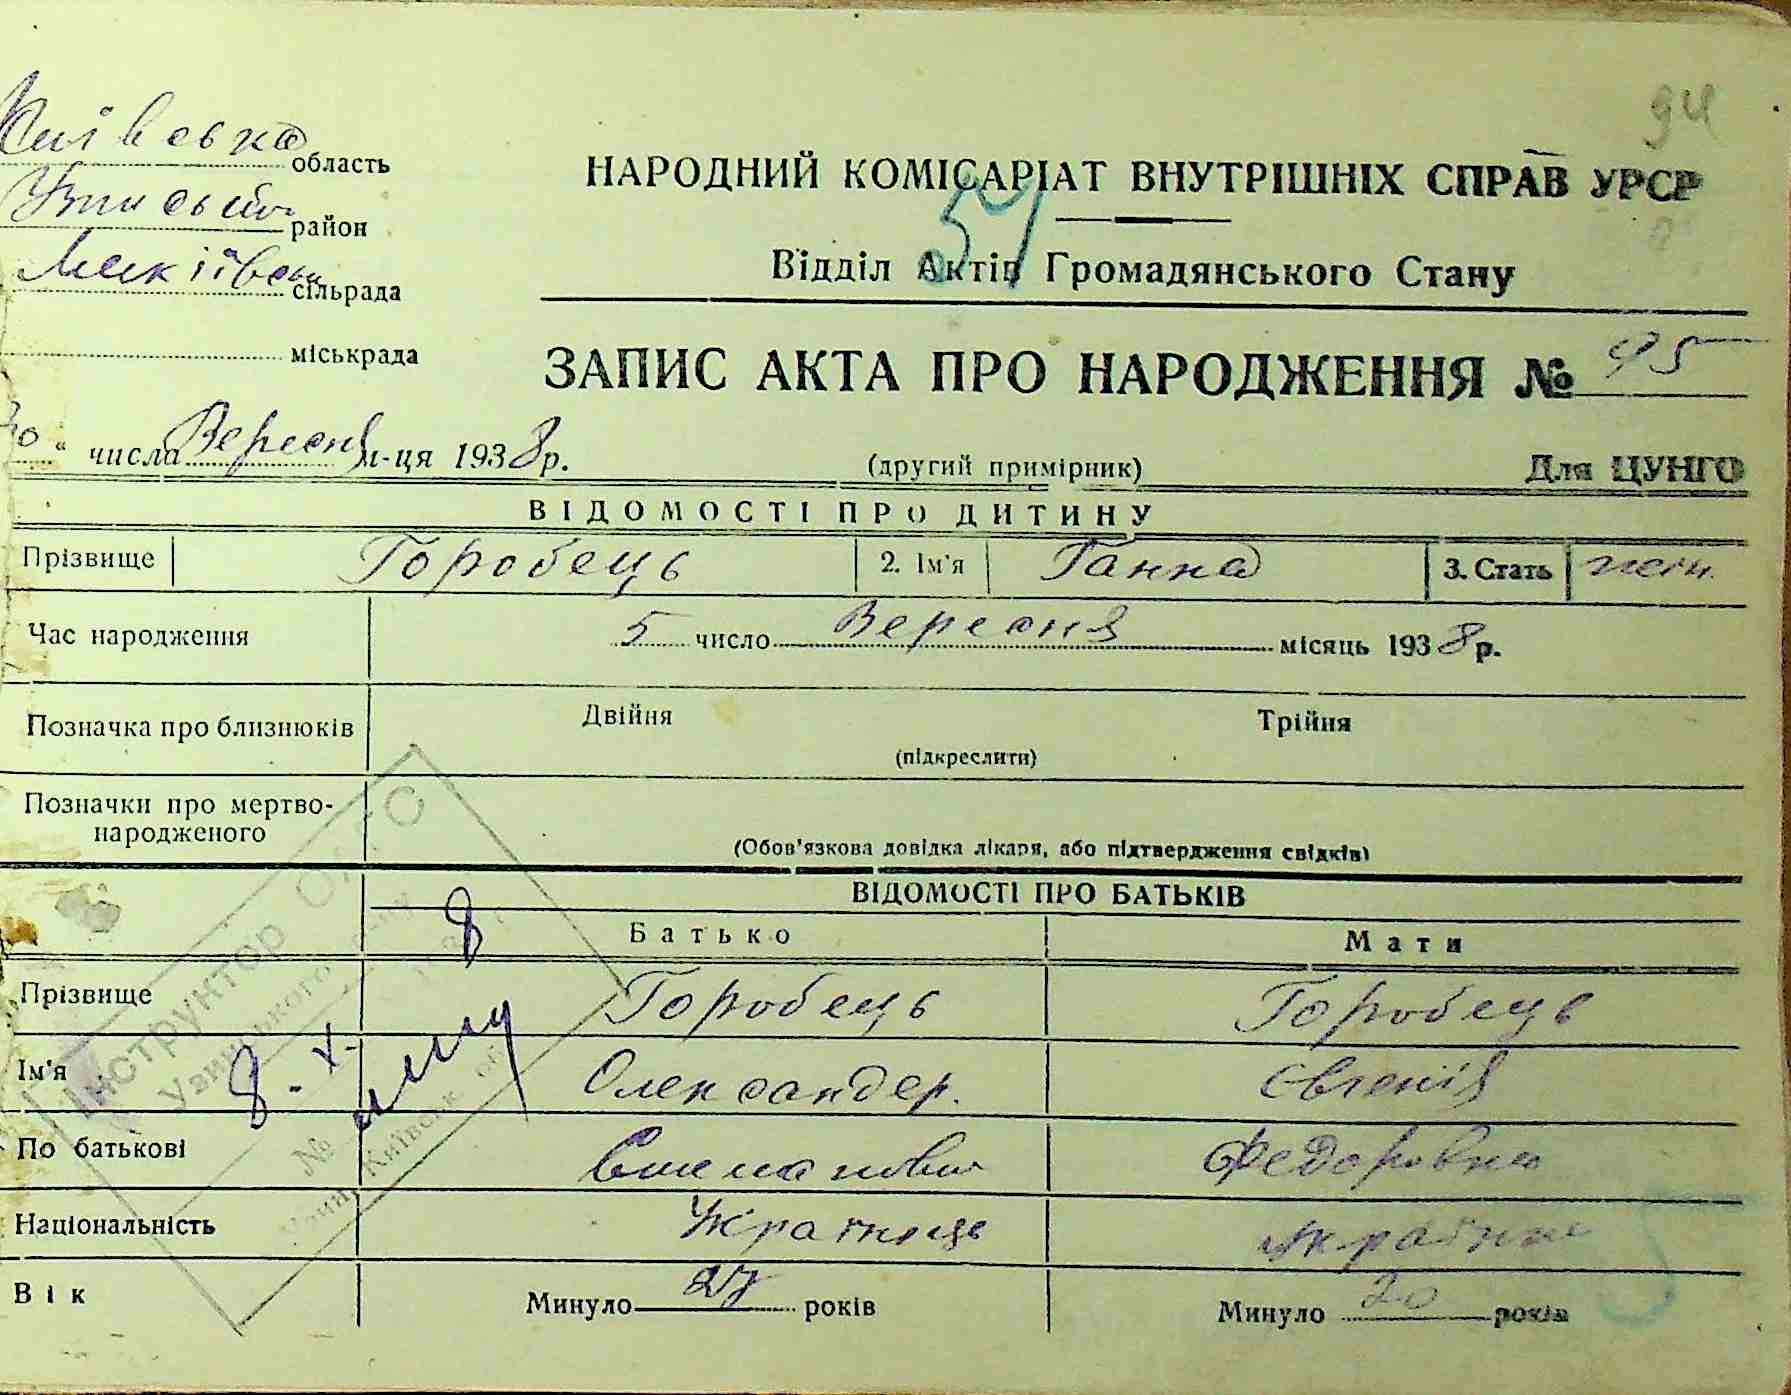 94
Київська область
Узинський район
сільрада
міськрада
НАРОДНИЙ КОМІСАРІАТ ВНУТРІШНІХ СПРАВ УРСР
51
Відділ Актів Громадянського Стану
ЗАПИС АКТА ПРО НАРОДЖЕННЯ № 95
30 " числа Вересня м-ця 1938 р.
(другий примірник)
Для ЦУНГО
ВІДОМОСТІ ПРО ДИТИНУ
Прізвище Горобець 2. Ім'я Ганна 3. Стать жін.
Час народження 5 число Вересня місяць 1938 р.
Позначка про близнюків Двійня Трійня
(підкреслити)
Позначки про мертво-
народженого
(Обов'язкова довідка лікаря, або підтвердження свідків)
ВІДОМОСТІ ПРО БАТЬКІВ
Батько Мати
Прізвище Горобець Горобець
Ім'я Олександер. Євгенія
По батькові Федоровна
Національність Українець українка
Вік Минуло 27 років Минуло 20 років
Інструктор ОАГС
Узинського
№
8
8. X.